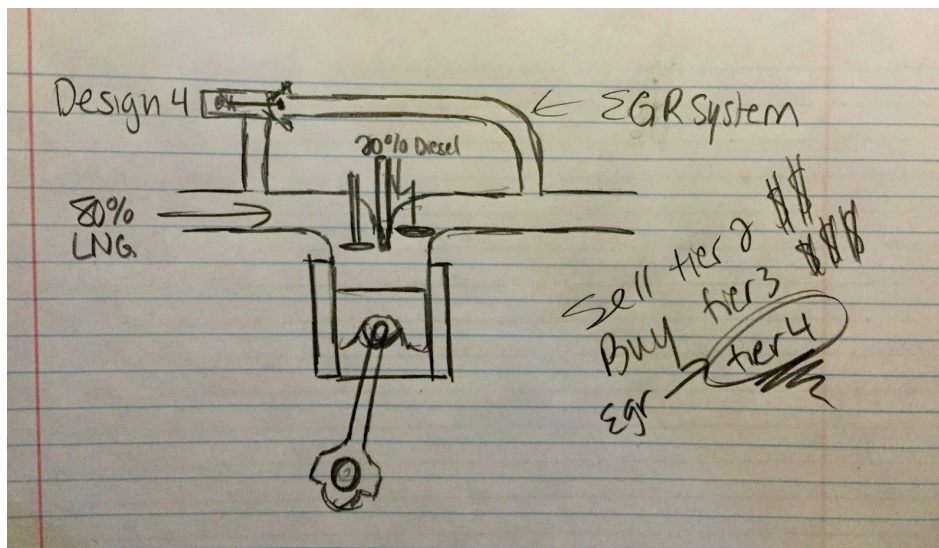 Design 4
EGR System
20% Diesel
80%
LNG
Sell tier 2 $$
Buy tier3 $$$
Egr tier4